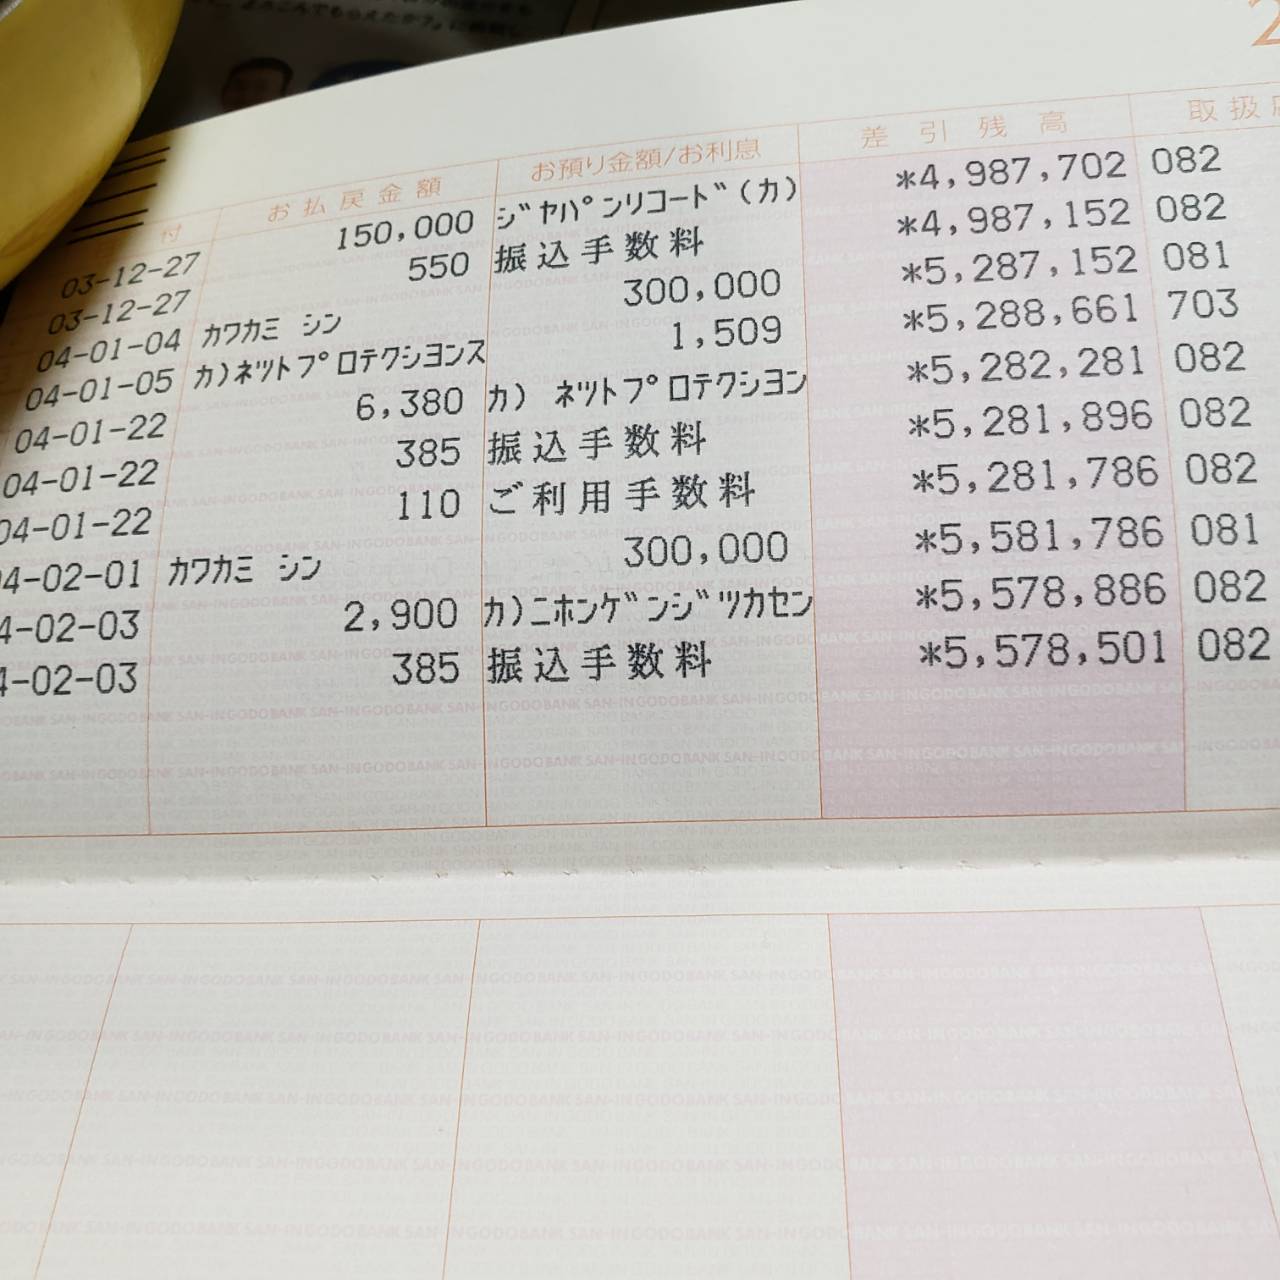 2
付 お払戻金額 お預り金額/お利息 差引残高 取扱店
03-12-27 150,000 ジヤパンリコード(カ) *4,987,702 082
03-12-27 550 振込手数料 *4,987,152 082
04-01-04 カワカミ シン 300,000 *5,287,152 081
04-01-05 カ)ネツトプロテクシヨンス 1,509 *5,288,661 703
04-01-22 6,380 カ) ネツトプロテクシヨン *5,282,281 082
04-01-22 385 振込手数料 *5,281,896 082
04-01-22 110 ご利用手数料 *5,281,786 082
04-02-01 カワカミ シン 300,000 *5,581,786 081
4-02-03 2,900 カ)ニホンゲンジツカセン *5,578,886 082
4-02-03 385 振込手数料 *5,578,501 082
SAN-IN GODO BANK